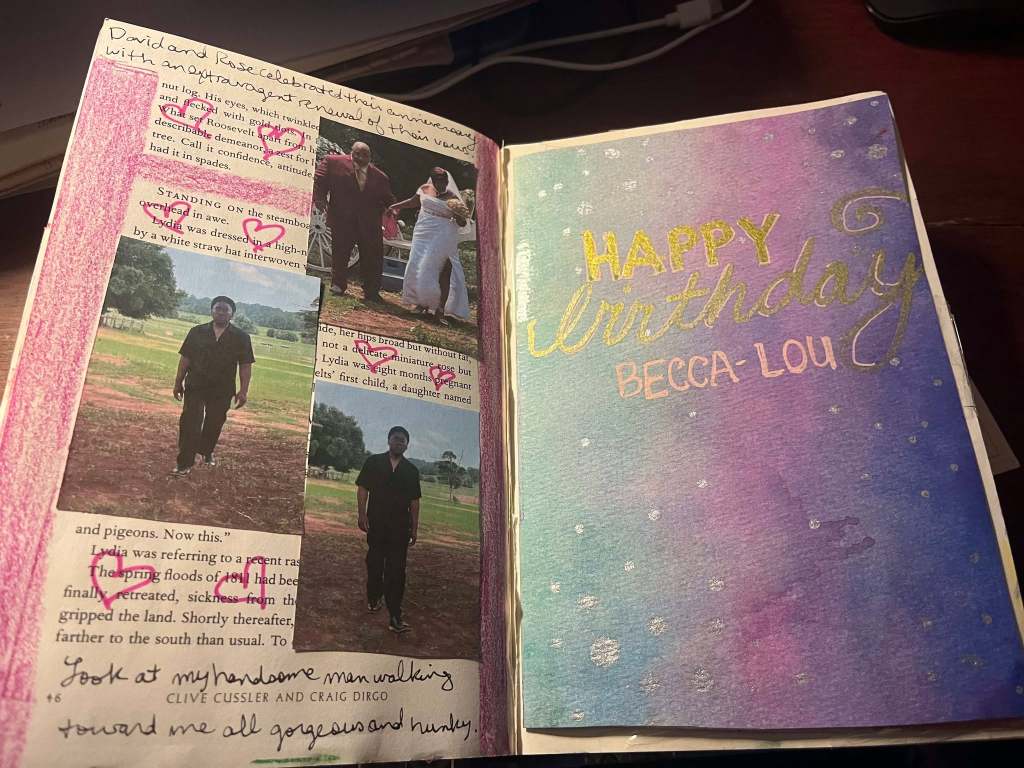 David and Rose celebrated their anniversery
with an extravagent renewal of their vows
nut log. His eyes, which twinkled
and flecked with gold dots. In
What set Roosevelt apart from
describable demeanor, a zest for
tree. Call it confidence, attitude,
had it in spades.
STANDING ON the steamboa
overhead in awe.
Lydia was dressed in a high-n
by a white straw hat interwoven
ide, her hips broad but without fat,
not a delicate miniature rose but
Lydia was eight months pregnant
elts' first child, a daughter named
and pigeons. Now this.”
Lydia was referring to a recent ras
The spring floods of 1811 had bee
finally retreated, sickness from the
gripped the land. Shortly thereafter,
farther to the south than usual. To
Look at my handsome man walking
46 CLIVE CUSSLER AND CRAIG DIRGO
toward me all gorgeous and hunky.
HAPPY
birthday
BECCA-LOU